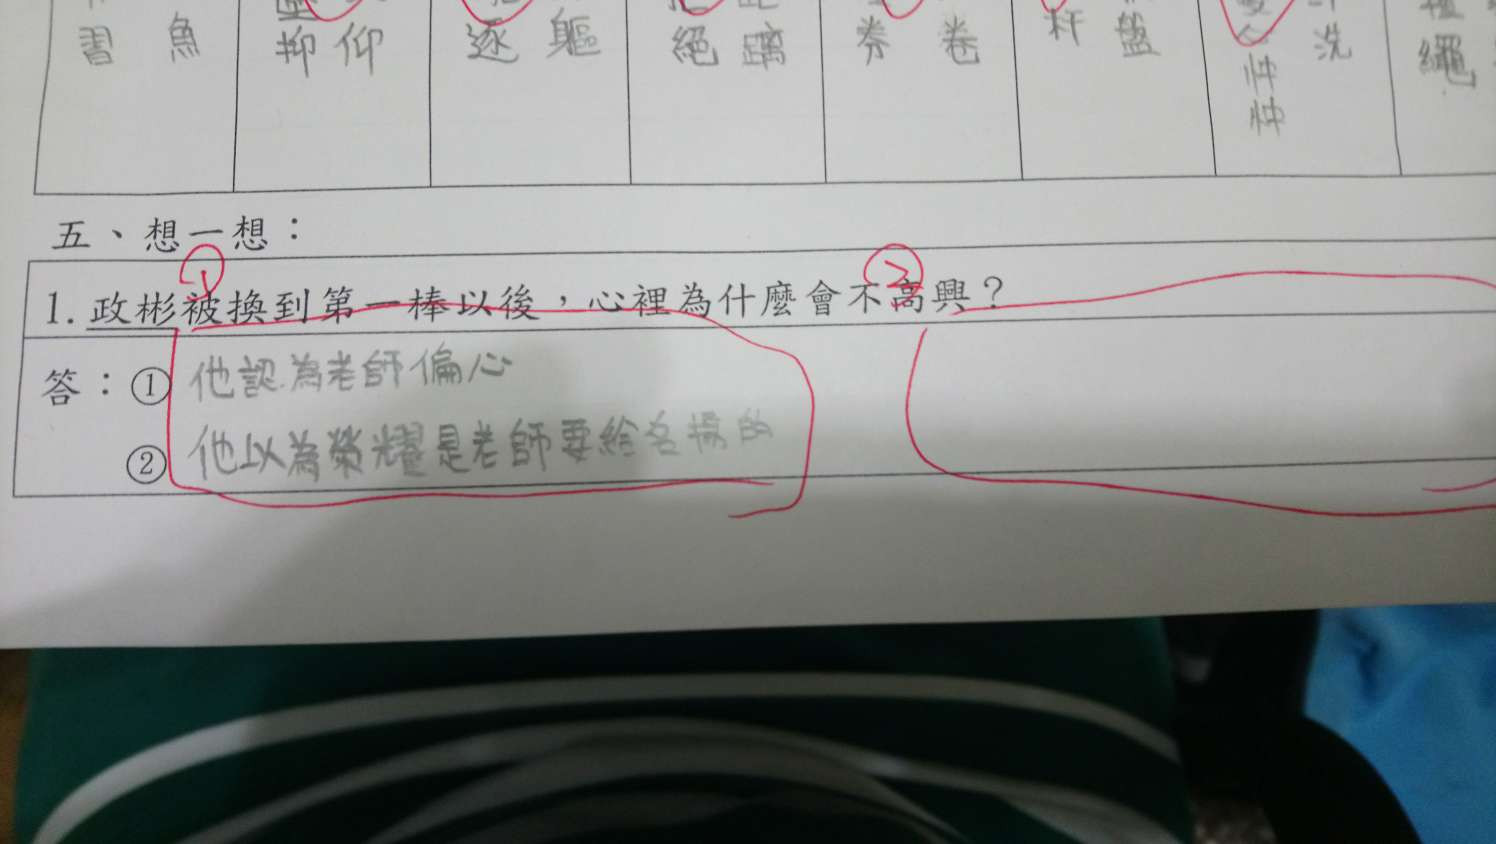 習 魚 抑 仰 逐 軀 絕 璃 券 卷 杆 盤 忡忡 洗 繩
五、想一想：
1 2
1. 政彬被換到第一棒以後，心裡為什麼會不高興？
答：① 他認為老師偏心
② 他以為榮耀是老師要給名揚的